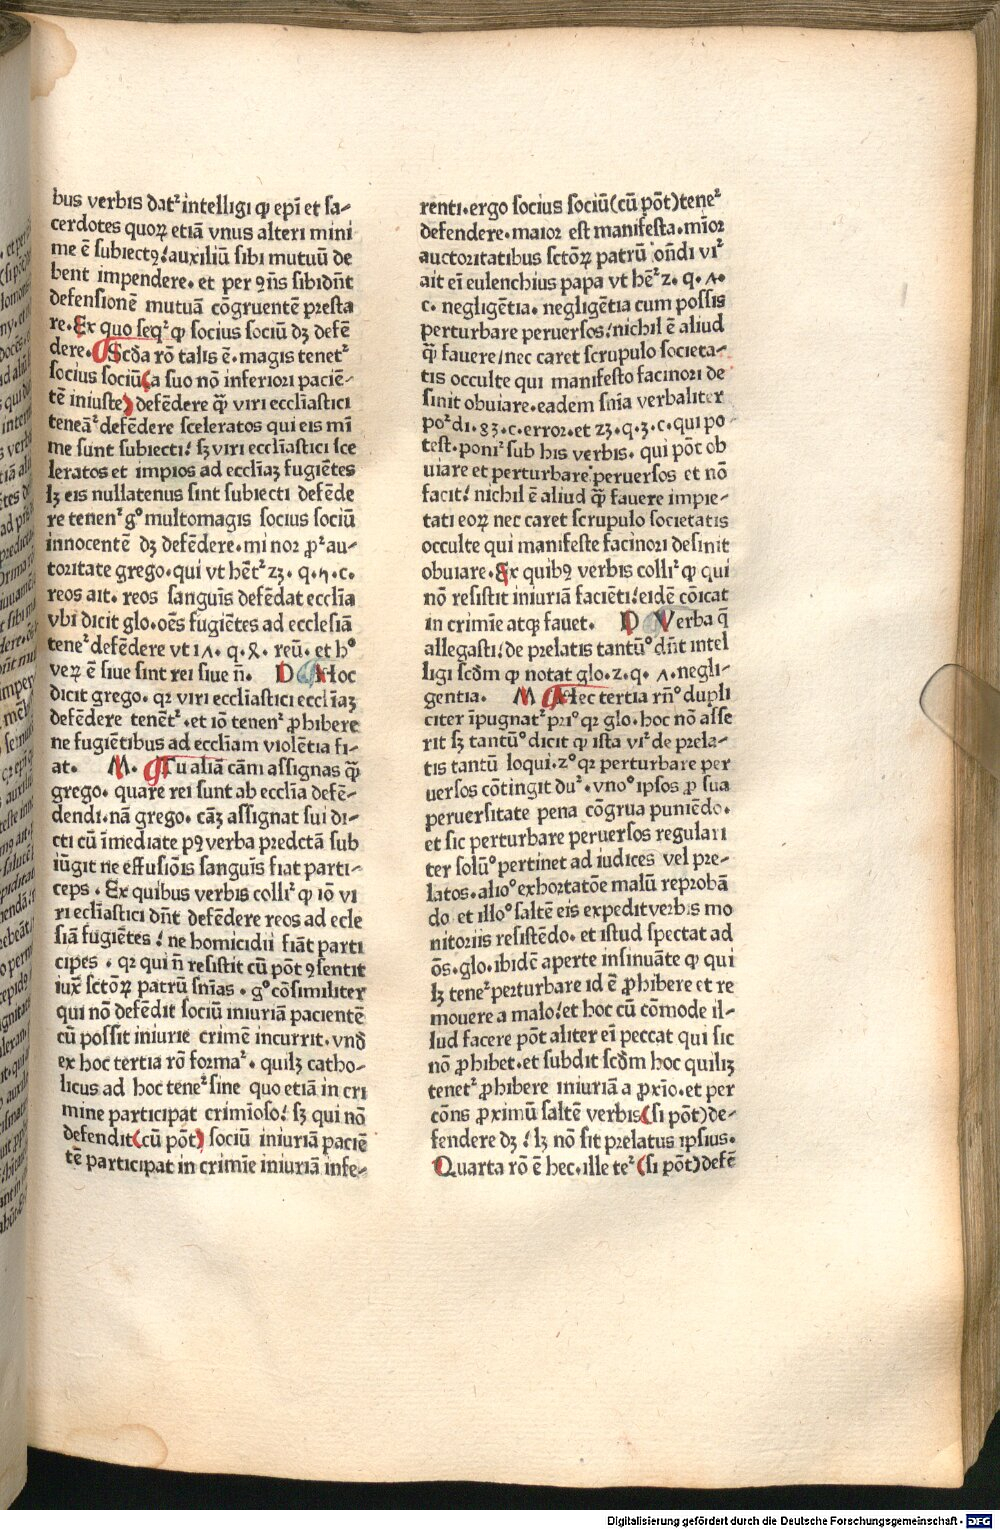 bus verbis datᷣ intelligi ꝙ ep̄i et sa-
cerdotes quoꝝ etiā vnus alteri mini
me ē subiectꝰ! auxiliū sibi mutuū de
bent impendere. et per ꝯn̄s sibi dn̄t
defensionē mutuā cōgruentē presta
re. Ex quo seqᷣ ꝙ socius sociū dꝫ defē
dere. Scda rō talis ē. magis tenetᷣ
socius sociū (a suo nō inferiori paciē-
tē iniuste) defēdere ꝙ̄ viri eccl̄iastici
teneāᷣ defēdere sceleratos qui eis mi
me sunt subiecti! sꝫ viri eccl̄iastici sce
leratos et impios ad eccl̄iaꝫ fugiētes
lꝫ eis nullatenus sint subiecti defēde
re tenenᷣ gͦ multomagis socius sociū
innocentē dꝫ defēdere. minor ꝓᷣ au-
toritate grego. qui vt hēt̄ᷣ 23. q. 5. c.
reos ait. reos sanguīs defēdat eccl̄ia
vbi dicit glo. oēs fugiētes ad ecclesiā
teneᷣ defēdere vt 17. q. 4. reū. et hͦ
veꝝ ē siue sint rei siue n̄. D Hoc
dicit grego. qꝛ viri eccliastici eccl̄iaꝫ
defēdere tenētᷣ. et iō tenenᷣ ꝓhibere
ne fugiētibus ad eccl̄iam violētia fi-
at. M. Tu aliā cām assignas ꝙ̄
grego. quare rei sunt ab eccl̄ia defē-
dendi. nā grego. cāꝫ assignat sui di-
cti cū īmediate pꝰ verba predctā sub
iūgit ne effusiōis sanguīs fiat parti-
ceps. Ex quibus verbis colliᷣ ꝙ iō vi
ri ecl̄iastici dn̄t defēdere reos ad ecle
siā fugiētes! ne homicidii fiāt parti
cipes. qꝛ qui n̄ resistit cū pōt ꝯsentit
iux̄ sctōꝝ patrū sn̄ias. gͦ cōsimiliter
qui nō defēdit sociū iniuriā pacientē
cū possit iniurie crimē incurrit. vnd̄
ex hoc tertia rō formaᷣ. quilꝫ catho-
licus ad hoc teneᷣ sine quo etiā in cri
mine participat crimīoso! sꝫ qui nō
defendit (cū pōt) sociū iniuriā paciē
tē participat in crimīe iniuriā infe-
renti. ergo socius sociū (cū pōt) teneᷣ
defendere. maior est manifesta. mīor
auctoritatibus sctōꝝ patrū on̄di viᷣ
ait ei̅ eulenchius papa vt hēᷣ 2. q. 7.
c. negligētia. negligētia cum possis
perturbare peruersos! nichil ē aliud
ꝙ̄ fauere! nec caret scrupulo societa-
tis occulte qui manifesto facinori de
sinit obuiare. eadem sn̄ia verbaliter
poᷣ di. 83. c. error. et 23. q. 3. c. qui po
test. poniᷣ sub his verbis. qui pōt ob
uiare et perturbare peruersos et nō
facit! nichil ē aliud ꝙ̄ fauere impie-
tati eoꝝ nec caret scrupulo societatis
occulte qui manifeste facinori desinit
obuiare. Ex quibꝰ verbis colliᷣ ꝙ qui
nō resistit iniuriā faciēti! eidē cōicat
in crimīe atqꝫ fauet. D Verba q̄
allegasti! de prelatis tantūͦ dn̄t intel
ligi scdm ꝙ notat glo. 2. q. 7. negli-
gentia. M Hec tertia rn̄ͦ dupli
citer īpugnatᷣ priͦ qꝛ glo. hoc nō asse
rit sꝫ tantūͦ dicit ꝙ ista viᷣ de prela-
tis tantū loqui. 2ͦ qꝛ perturbare per
uersos cōtingit duᷣ. vnoͦ ipsos ꝓ sua
peruersitate pena cōgrua puniēdo.
et sic perturbare peruersos regulari
ter solūͦ pertinet ad iudices vel pre-
latos. alioͦ exhortatōe malū reprobā
do et illoͦ saltē eis expedit verbis mo
nitoriis resistēdo. et istud spectat ad
ōs. glo. ibidē aperte insinuāte ꝙ qui
lꝫ teneᷣ perturbare id ē ꝓhibere et re
mouere a malo! et hoc cū cōmode il-
lud facere pōt aliter ei̅ peccat qui sic
nō ꝓhibet. et subdit scdm hoc quilꝫ
tenetᷣ ꝓhibere iniuriā a ꝓxīo. et per
cōns ꝓximū saltē verbis (si pōt) de-
fendere dꝫ! lꝫ nō sit prelatus ipsius.
Quarta rō ē hec. ille teᷣ (si pōt) defē
Digitalisierung gefördert durch die Deutsche Forschungsgemeinschaft - DFG